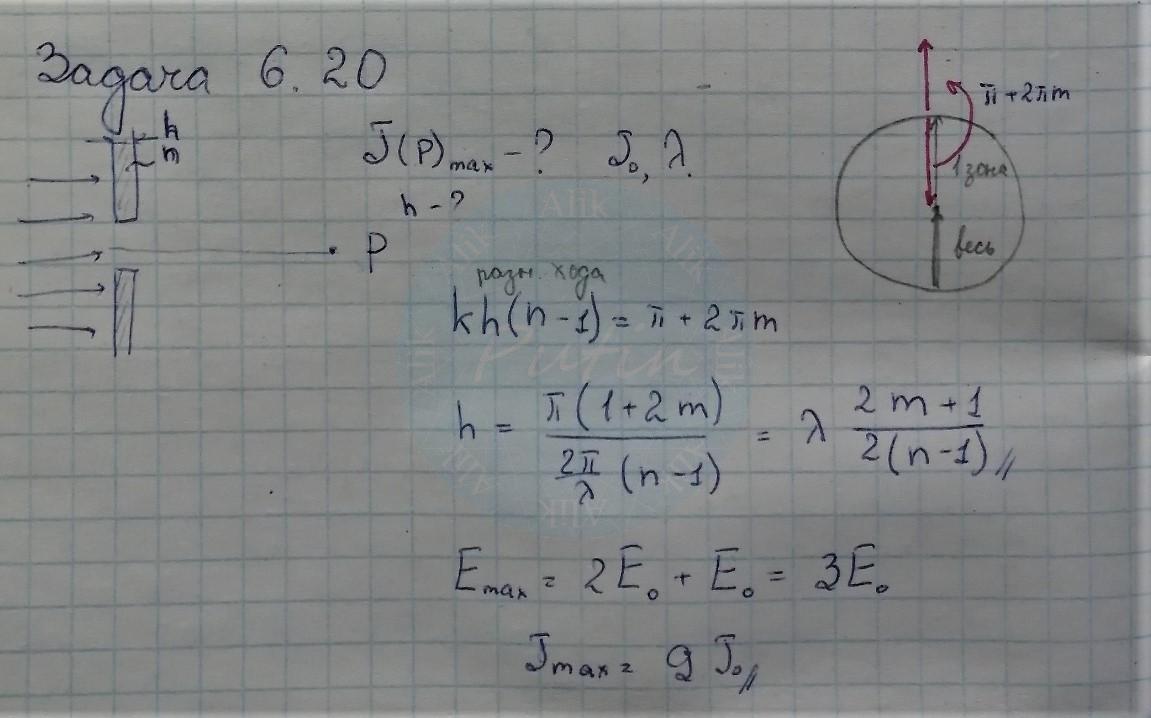 Задача 6.20
h
n
J(P)max - ? J₀, λ.
h - ?
P
π + 2πm
1 зона
весь
разн. хода
kh(n-1) = π + 2πm
h = π(1+2m) / (2π/λ (n-1)) = λ (2m+1) / (2(n-1))
Emax = 2E₀ + E₀ = 3E₀
Jmax = 9 J₀
Alik
Alik
Alik
Alik
Alik
Alik
Alik
Alik
Putin